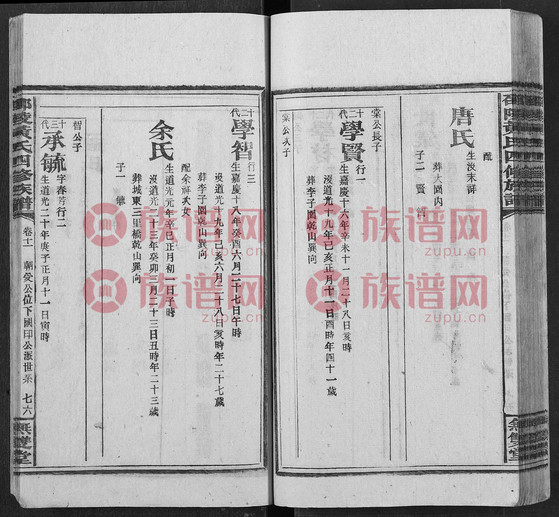 邵陵黃氏四修族譜
無雙堂
配
唐氏
生沒未詳
葬大園內
子二 賢
棠公長子
十二代
學賢
行一
生嘉慶十六年辛未十一月二十八日亥時
沒道光十九年己亥正月十一日酉時年四十一歲
葬李子園乾山巽向
棠公次子
十二代
學智
行三
生嘉慶十八年癸酉六月二十七日午時
沒道光十九年己亥六月二十八日亥時年二十七歲
葬李子園乾山巽向
配余祥次女
余氏
生道光元年辛巳正月初一日子時
沒道光二十三年癸卯三月二十三日丑時年二十三歲
葬城東三里橋乾山巽向
子一 毓
智公子
十三代
承毓
字春芳行二
生道光二十年庚子正月十一日寅時
邵陵黃氏四修族譜
卷十一
朝受公位下國印公派世系
七六
無雙堂
族谱网
zupu.cn
族谱网
zupu.cn
族谱网
zupu.cn
族谱网
zupu.cn